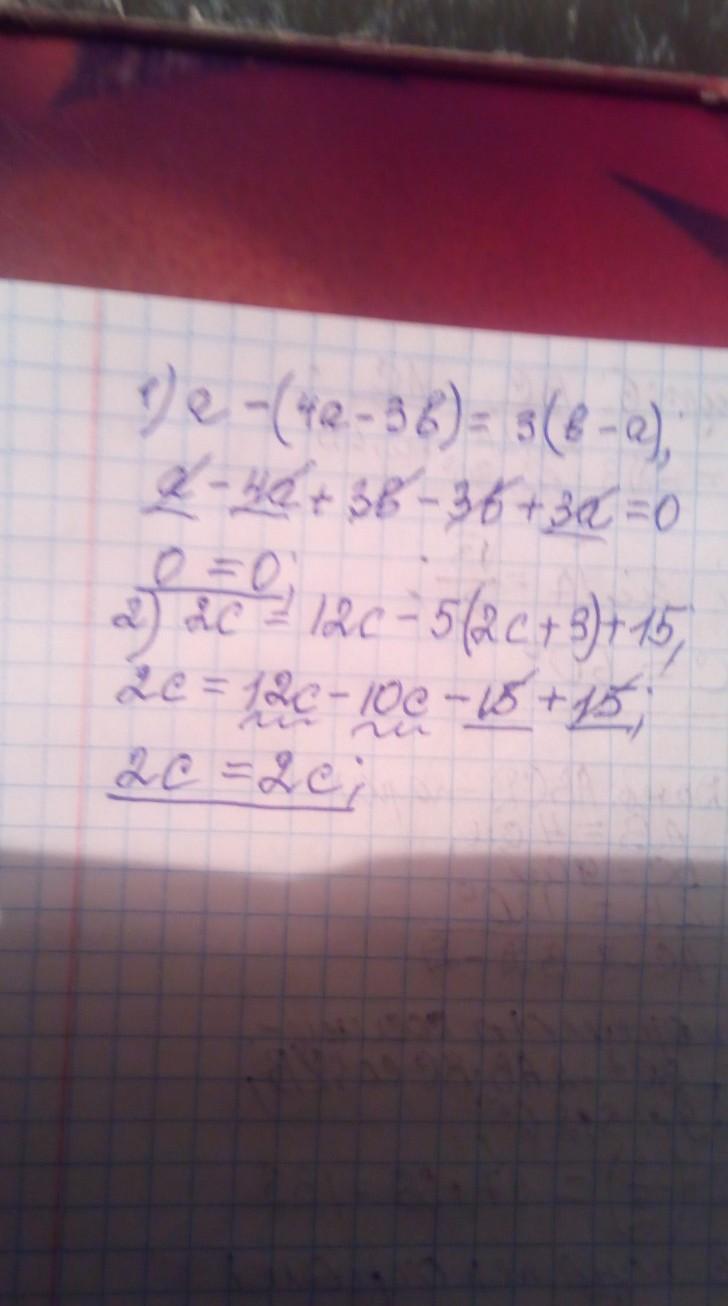 1) a - (4a - 3в) = 3(в - a);
a - 4a + 3в - 3в + 3a = 0
0 = 0;
2) 2c = 12c - 5(2c + 3) + 15;
2c = 12c - 10c - 15 + 15;
2c = 2c;